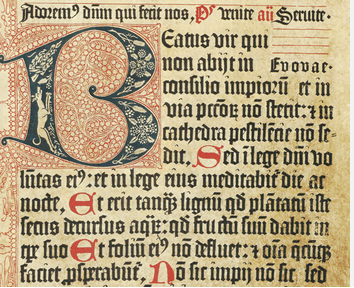 Adorem⁹ dūm qui fecit nos, P̄s venite añ Servite.
Beatus vir qui
non abijt in Evovae.
consilio impiorū et in
via pcc̄oꝝ nō stetit: ⁊ in
cathedra pestilēcie nō se-
dit, Sed ī lege dūi vo
lūtas ei⁹: et in lege eius meditabit̄ die ac
nocte, Et erit tanꝗ̄ lignū qd̄ plātatū iste
secus decursus aqꝝ: qd̄ fructū suū dabit in
tpr̄ suo Et foliū ei⁹ nō defluet: ⁊ oīa q̄cūqꝫ
faciet ꝓspābūt̄, Nō sic impij nō sic, sed